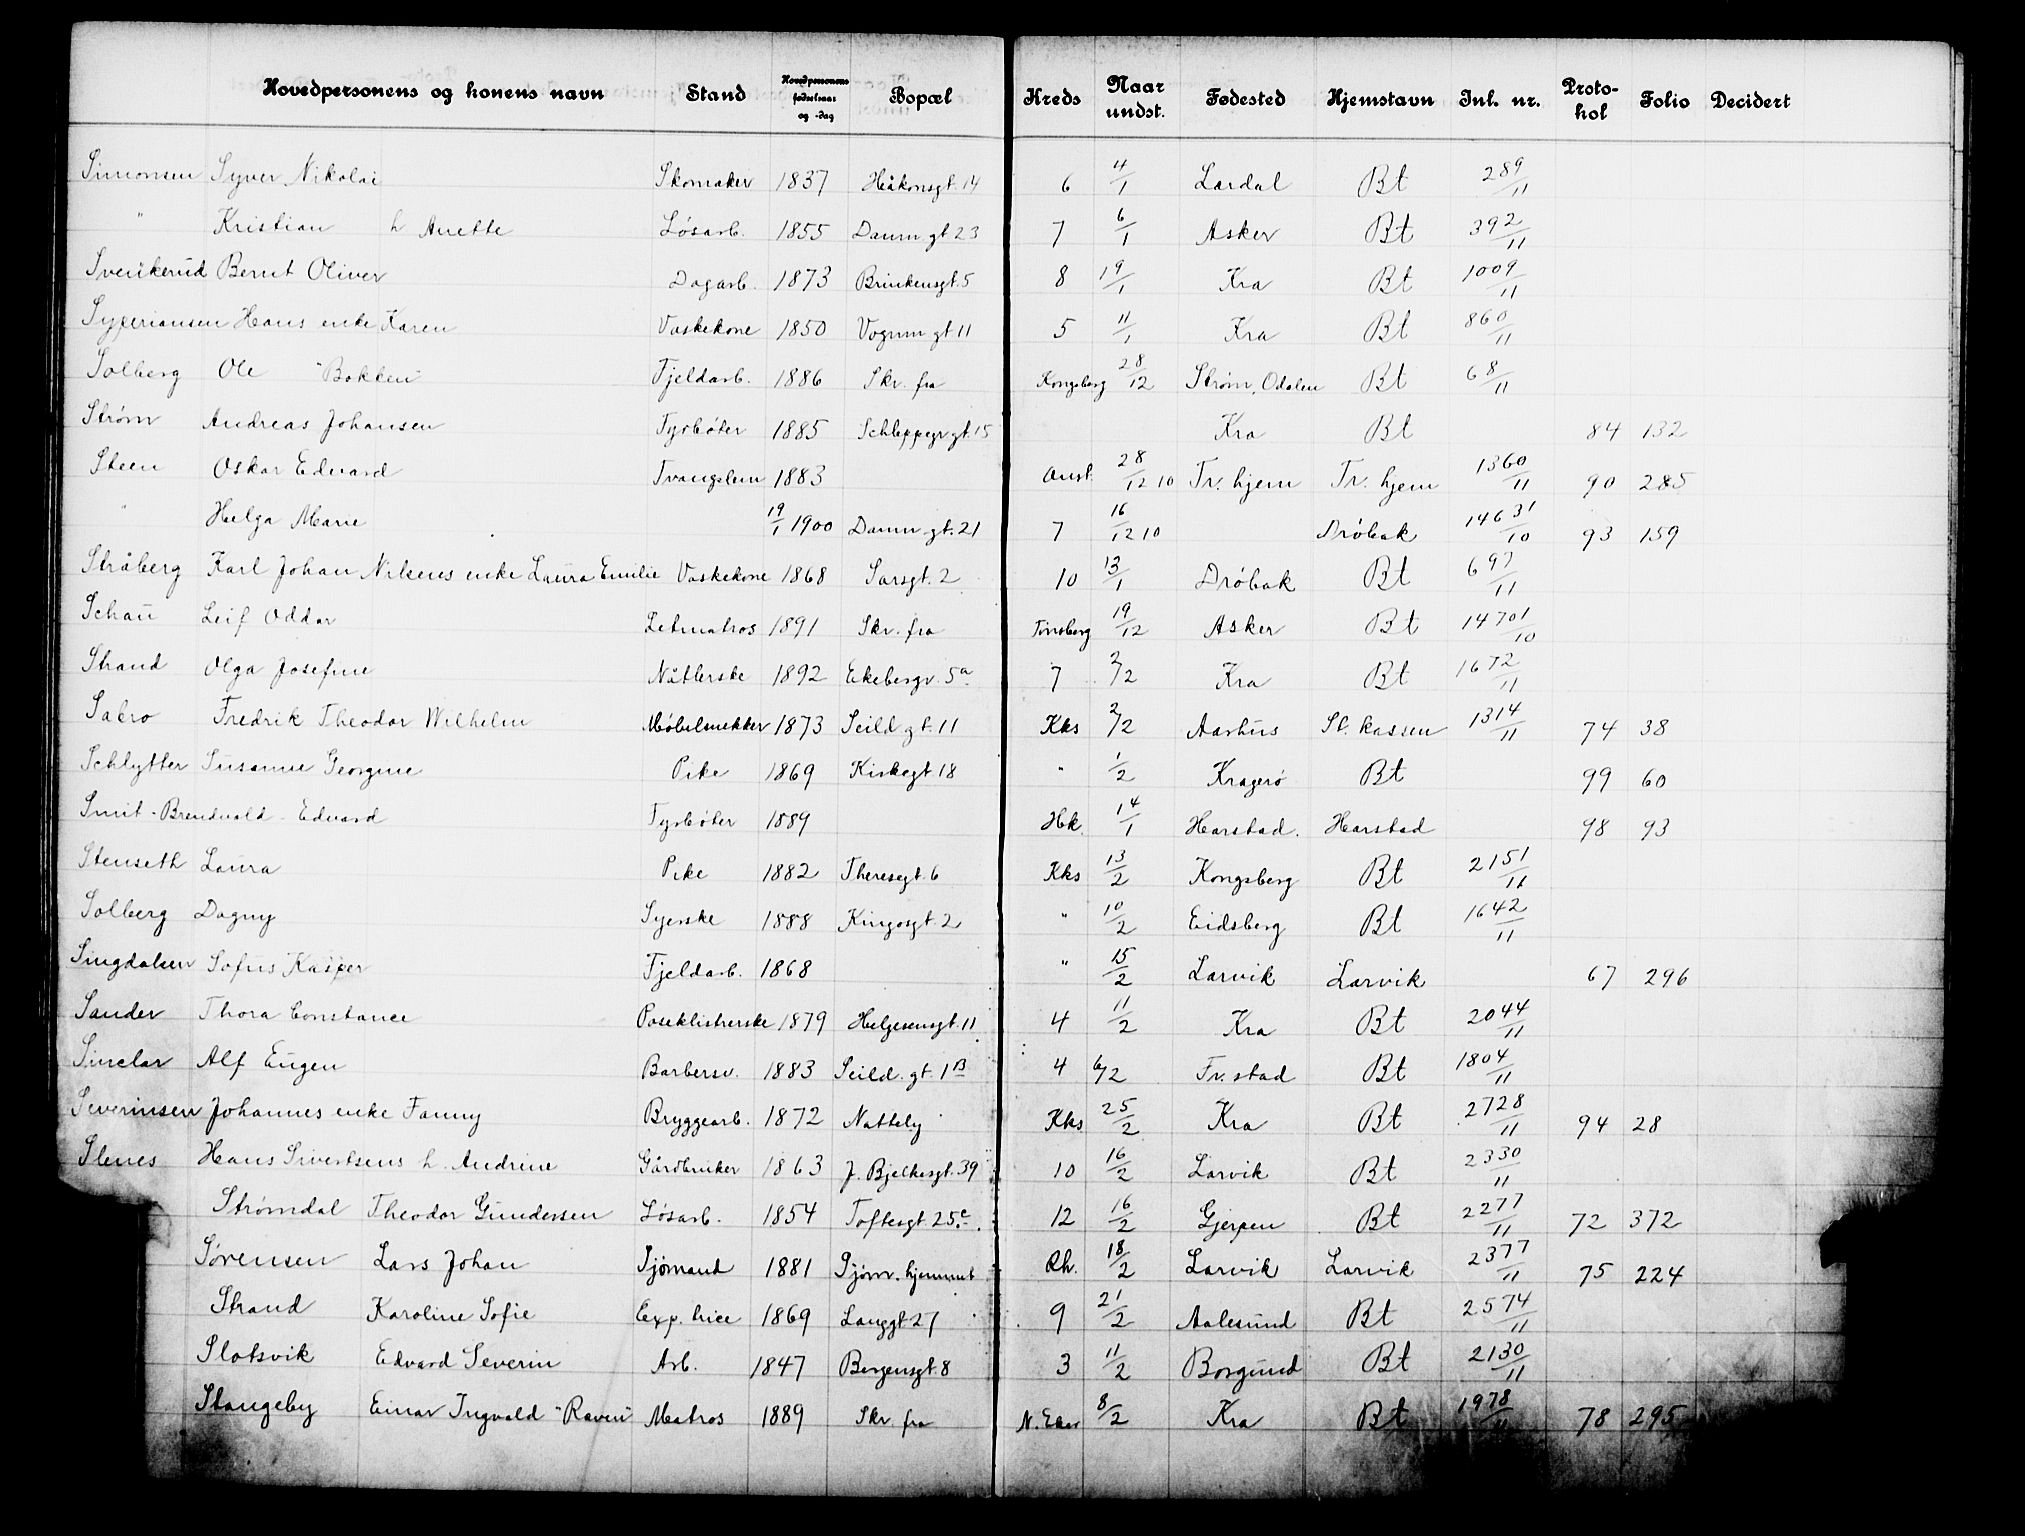 Hovedpersonens og konens navn Stand Hovedpersonens fødselsaar og -dag Bopæl Kreds Naar undst. Fødested Hjemstavn Inl. nr. Proto-kol Folio Decidert
Simonsen Syver Nikolai Skomaker 1837 Håkonsgt. 14 6 4/1 Lardal Bt 289/11
" Kristian h Anette Løsarb. 1855 Damm gt 23 7 6/1 Asker Bt 392/11
Svenkerud Bernt Oliver Dagarb. 1873 Brinkensgt. 5 8 19/1 Kra Bt 1009/11
Syperiansen Hans enke Karen Vaskekone 1850 Vognm gt 11 5 11/1 Kra Bt 860/11
Solberg Ole "Bokken" Fjeldarb. 1886 Skr. fra Kongsberg 28/12 Strøm, Odalen Bt 68/11
Strøm Andreas Johansen Fyrbøter 1885 Schleppegr gt. 15 Kra Bt 84 132
Steen Oskar Edvard Tvangslem 1883 Anst. 28/12 10 Tr. hjem Tr. hjem 1360/11 90 285
" Helga Marie 19/1 1900 Damm gt. 21 7 16/12 10 Drøbak 14631/10 93 159
Stråberg Karl Johan Nilsens enke Laura Emilie Vaskekone 1868 Sarsgt. 2 10 13/1 Drøbak Bt 697/11
Schau Leif Oddar Letmatros 1891 Skr. fra Tønsberg 19/12 Asker Bt 14701/10
Strand Olga Josefine Nåtlerske 1892 Ekebergv. 5a 7 2/2 Kra Bt 1672/11
Sabro Fredrik Theodor Wilhelm Møbelsnekker 1873 Seild gt. 11 Kks 2/2 Aarhus St. kassen 1314/11 74 38
Schlytter Susanne Georgine Pike 1869 Kirkegt. 18 " 1/2 Kragerø Bt 99 60
Smit-Brendvold-Edvard Fyrbøter 1889 Hk. 14/1 Harstad. Harstad 98 93
Stenseth Laura Pike 1882 Theresegt. 6 Kks 13/2 Kongsberg Bt 2151/11
Solberg Dagny Syerske 1888 Kingosgt. 2 " 10/2 Eidsberg Bt 1642/11
Singdalsen Sofus Kasper Fjeldarb. 1868 " 15/2 Larvik Larvik 67 296
Sander Thora Constance Poseklistrerske 1879 Helgesensgt. 11 4 11/2 Kra Bt 2044/11
Sinclar Alf Eugen Barbersv. 1883 Seild. gt. 1B 4 6/2 Fr. stad Bt 1804/11
Severinsen Johannes enke Fanny Bryggearb. 1872 Nattely Kks 25/2 Kra Bt 2728/11 94 28
Stenes Hans Sivertsens h. Andrine Gårdbruker 1863 J. Bjelkesgt. 39 10 16/2 Larvik Bt 2330/11
Strømdal Theodor Gundersen Løsarb. 1854 Toftesgt. 25c. 12 16/2 Gjerpen Bt 2277/11 72 372
Sørensen Lars Johan Sjømand 1881 Sjøm. hjemmet Rh. 18/2 Larvik Larvik 2377/11 75 224
Strand Karoline Sofie Exp. trice 1869 Langgt 27 9 21/2 Aalesund Bt 2574/11
Slotsvik Edvard Severin Arb. 1847 Bergensgt. 8 3 11/2 Borgund Bt 2130/11
Stangeby Einar Ingvald "Raven" Matros 1889 Skr. fra N. Eker 8/2 Kra Bt 1978/11 78 295